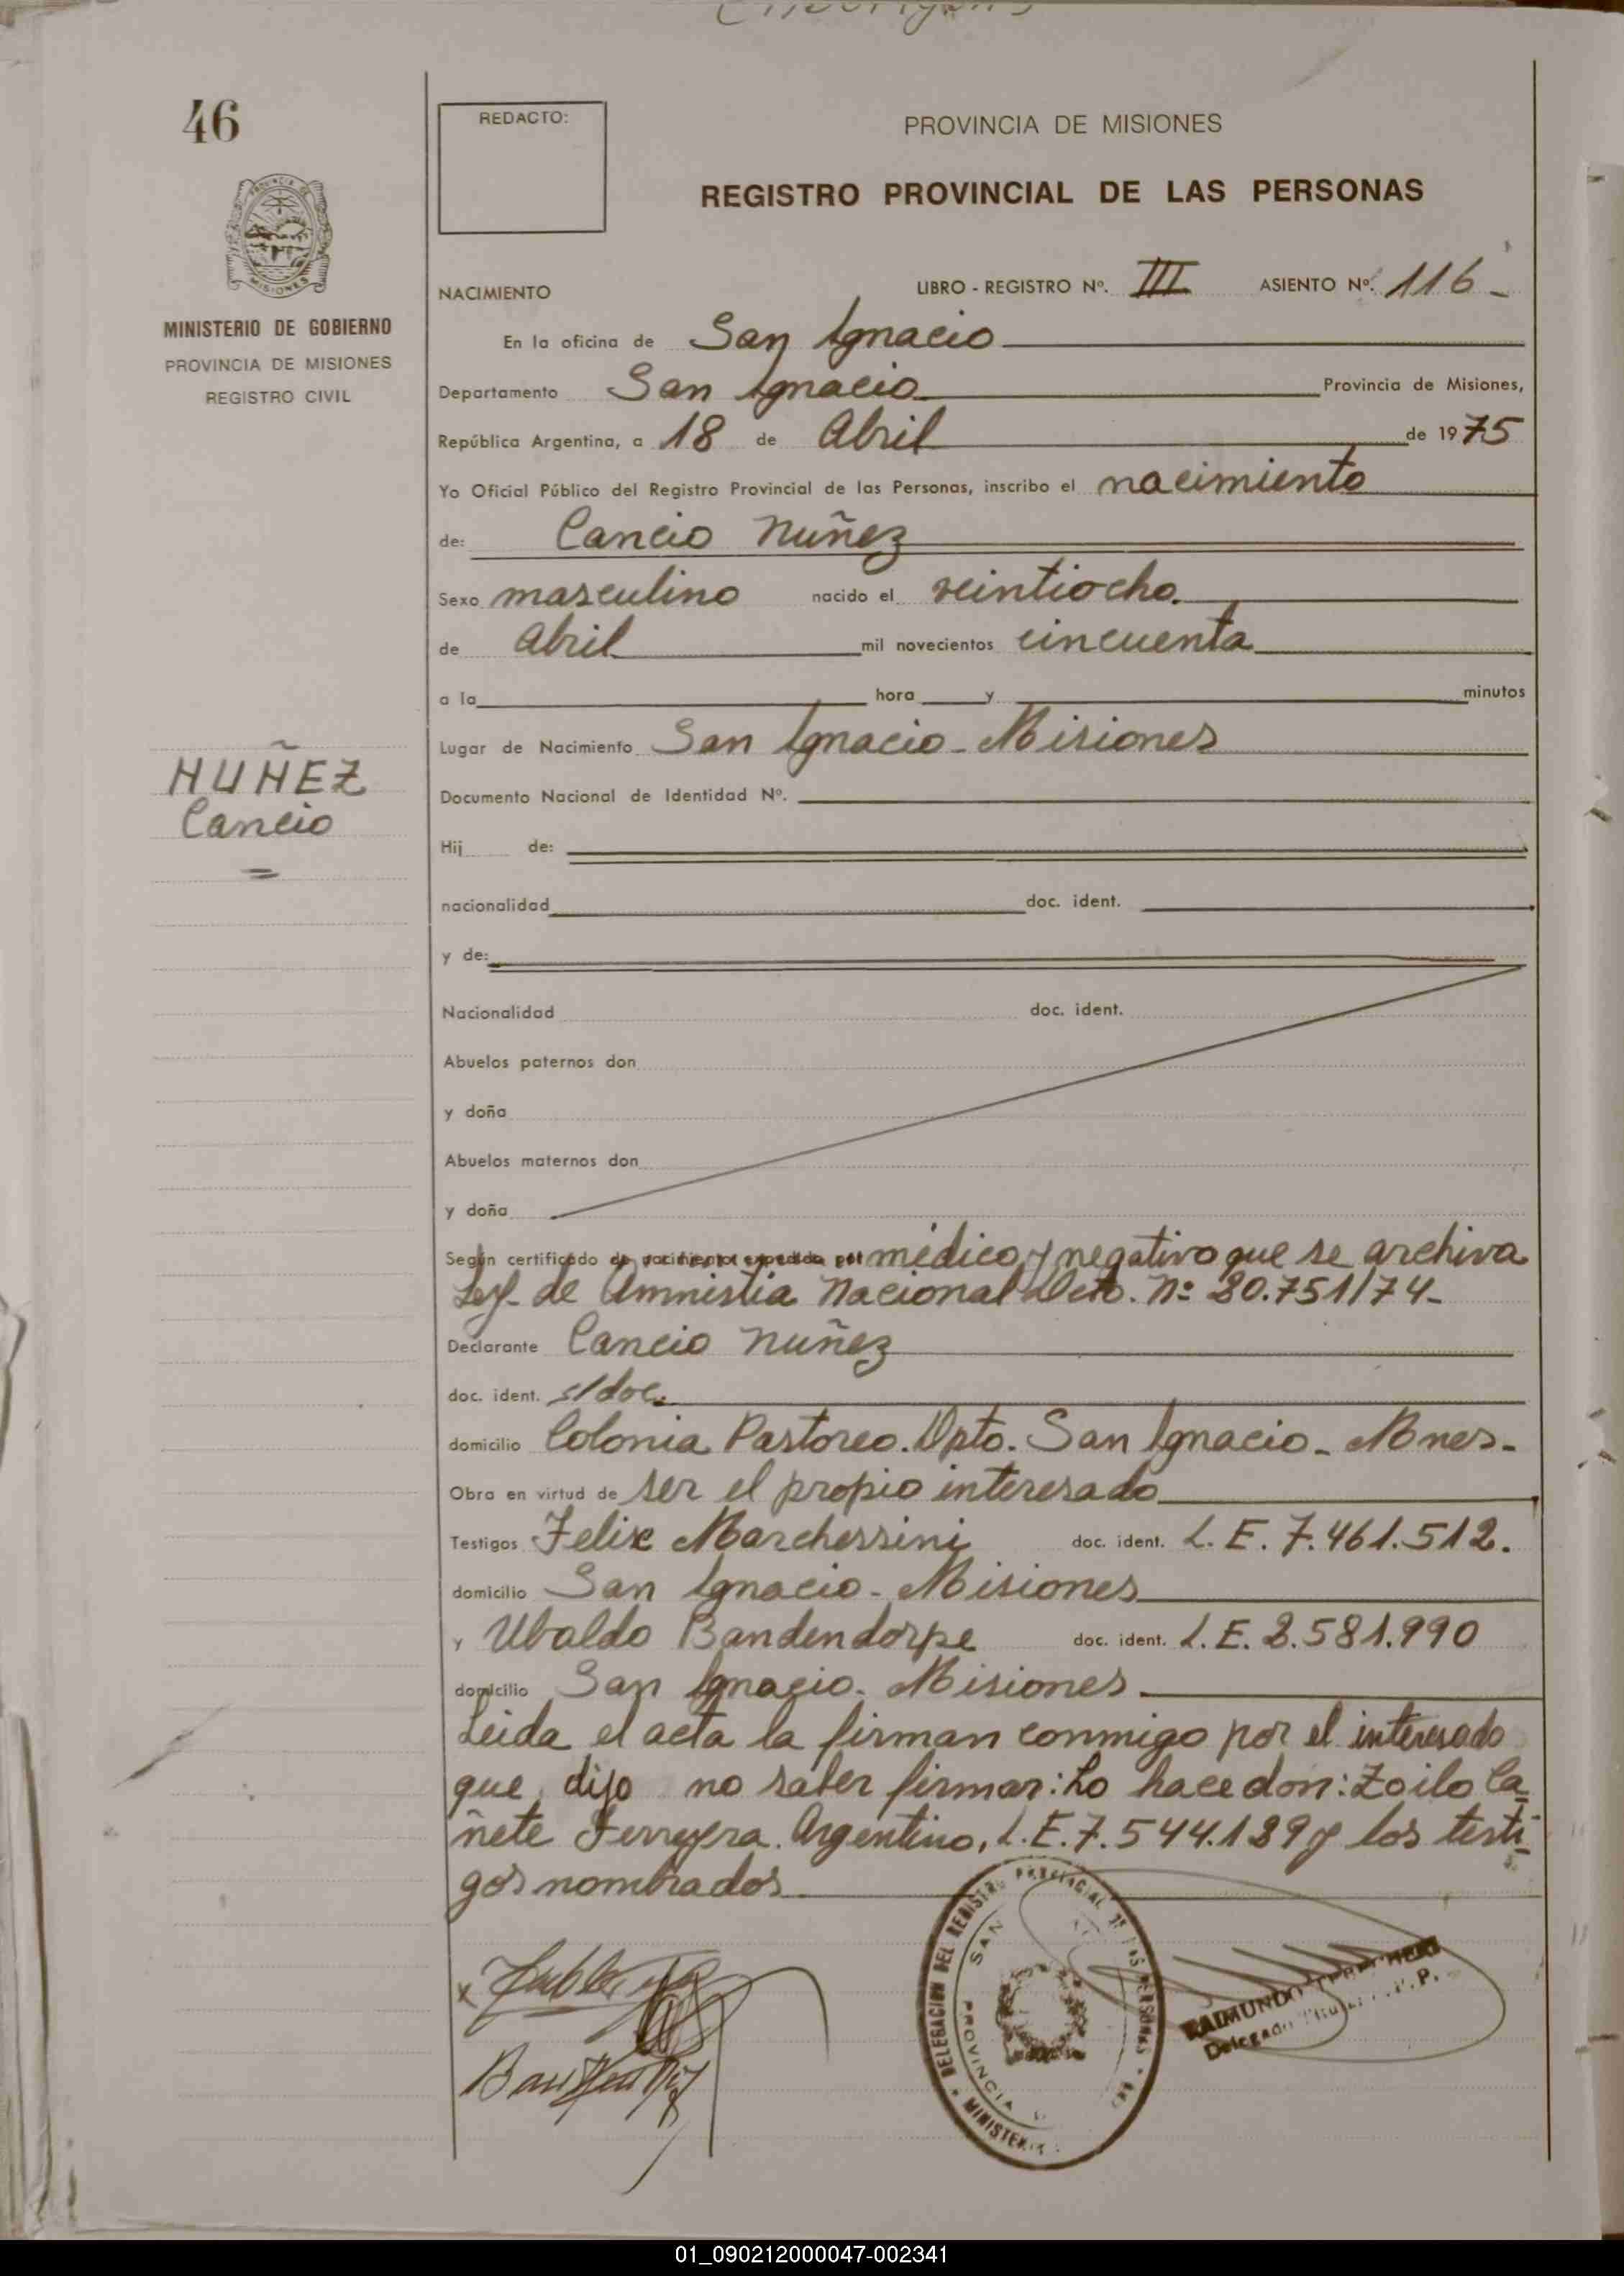 46
REDACTO:
PROVINCIA DE MISIONES
REGISTRO PROVINCIAL DE LAS PERSONAS
MINISTERIO DE GOBIERNO
PROVINCIA DE MISIONES
REGISTRO CIVIL
NACIMIENTO LIBRO - REGISTRO Nº. III ASIENTO Nº. 116-
En la oficina de San Ignacio
Departamento San Ignacio Provincia de Misiones,
República Argentina, a 18 de Abril de 1975
Yo Oficial Público del Registro Provincial de las Personas, inscribo el nacimiento
de: Cancio Nuñez
Sexo masculino nacido el veintiocho
de Abril mil novecientos cincuenta
a la hora y minutos
Lugar de Nacimiento San Ignacio - Misiones
NUÑEZ
Cancio
Documento Nacional de Identidad Nº.
Hij de:
nacionalidad doc. ident.
y de:
Nacionalidad doc. ident.
Abuelos paternos don
y doña
Abuelos maternos don
y doña
Según certificado de nacimiento expedido por médico y negativo que se archiva
Ley. de Amnistia Nacional Dcto. Nº 20.751/74-
Declarante Cancio Nuñez
doc. ident. s/doc.
domicilio Colonia Pastoreo. Dpto. San Ignacio - Mnes-
Obra en virtud de ser el propio interesado
Testigos Felix Marchessini doc. ident. L. E. 7.461.512.
domicilio San Ignacio - Misiones
y Ubaldo Bandendorpe doc. ident. L. E. 2.581.990
domicilio San Ignacio. Misiones
Leida el acta la firman conmigo por el interesado
que dijo no saber firmar: Lo hace don: Zoilo Ca-
ñete Ferreyra. Argentino, L. E. 7.544.189 y los testi-
gos nombrados
DELEGACION DEL REGISTRO PROVINCIAL DE LAS PERSONAS
SAN
PROVINCIA
RAIMUNDO
Delegado
01_090212000047-002341